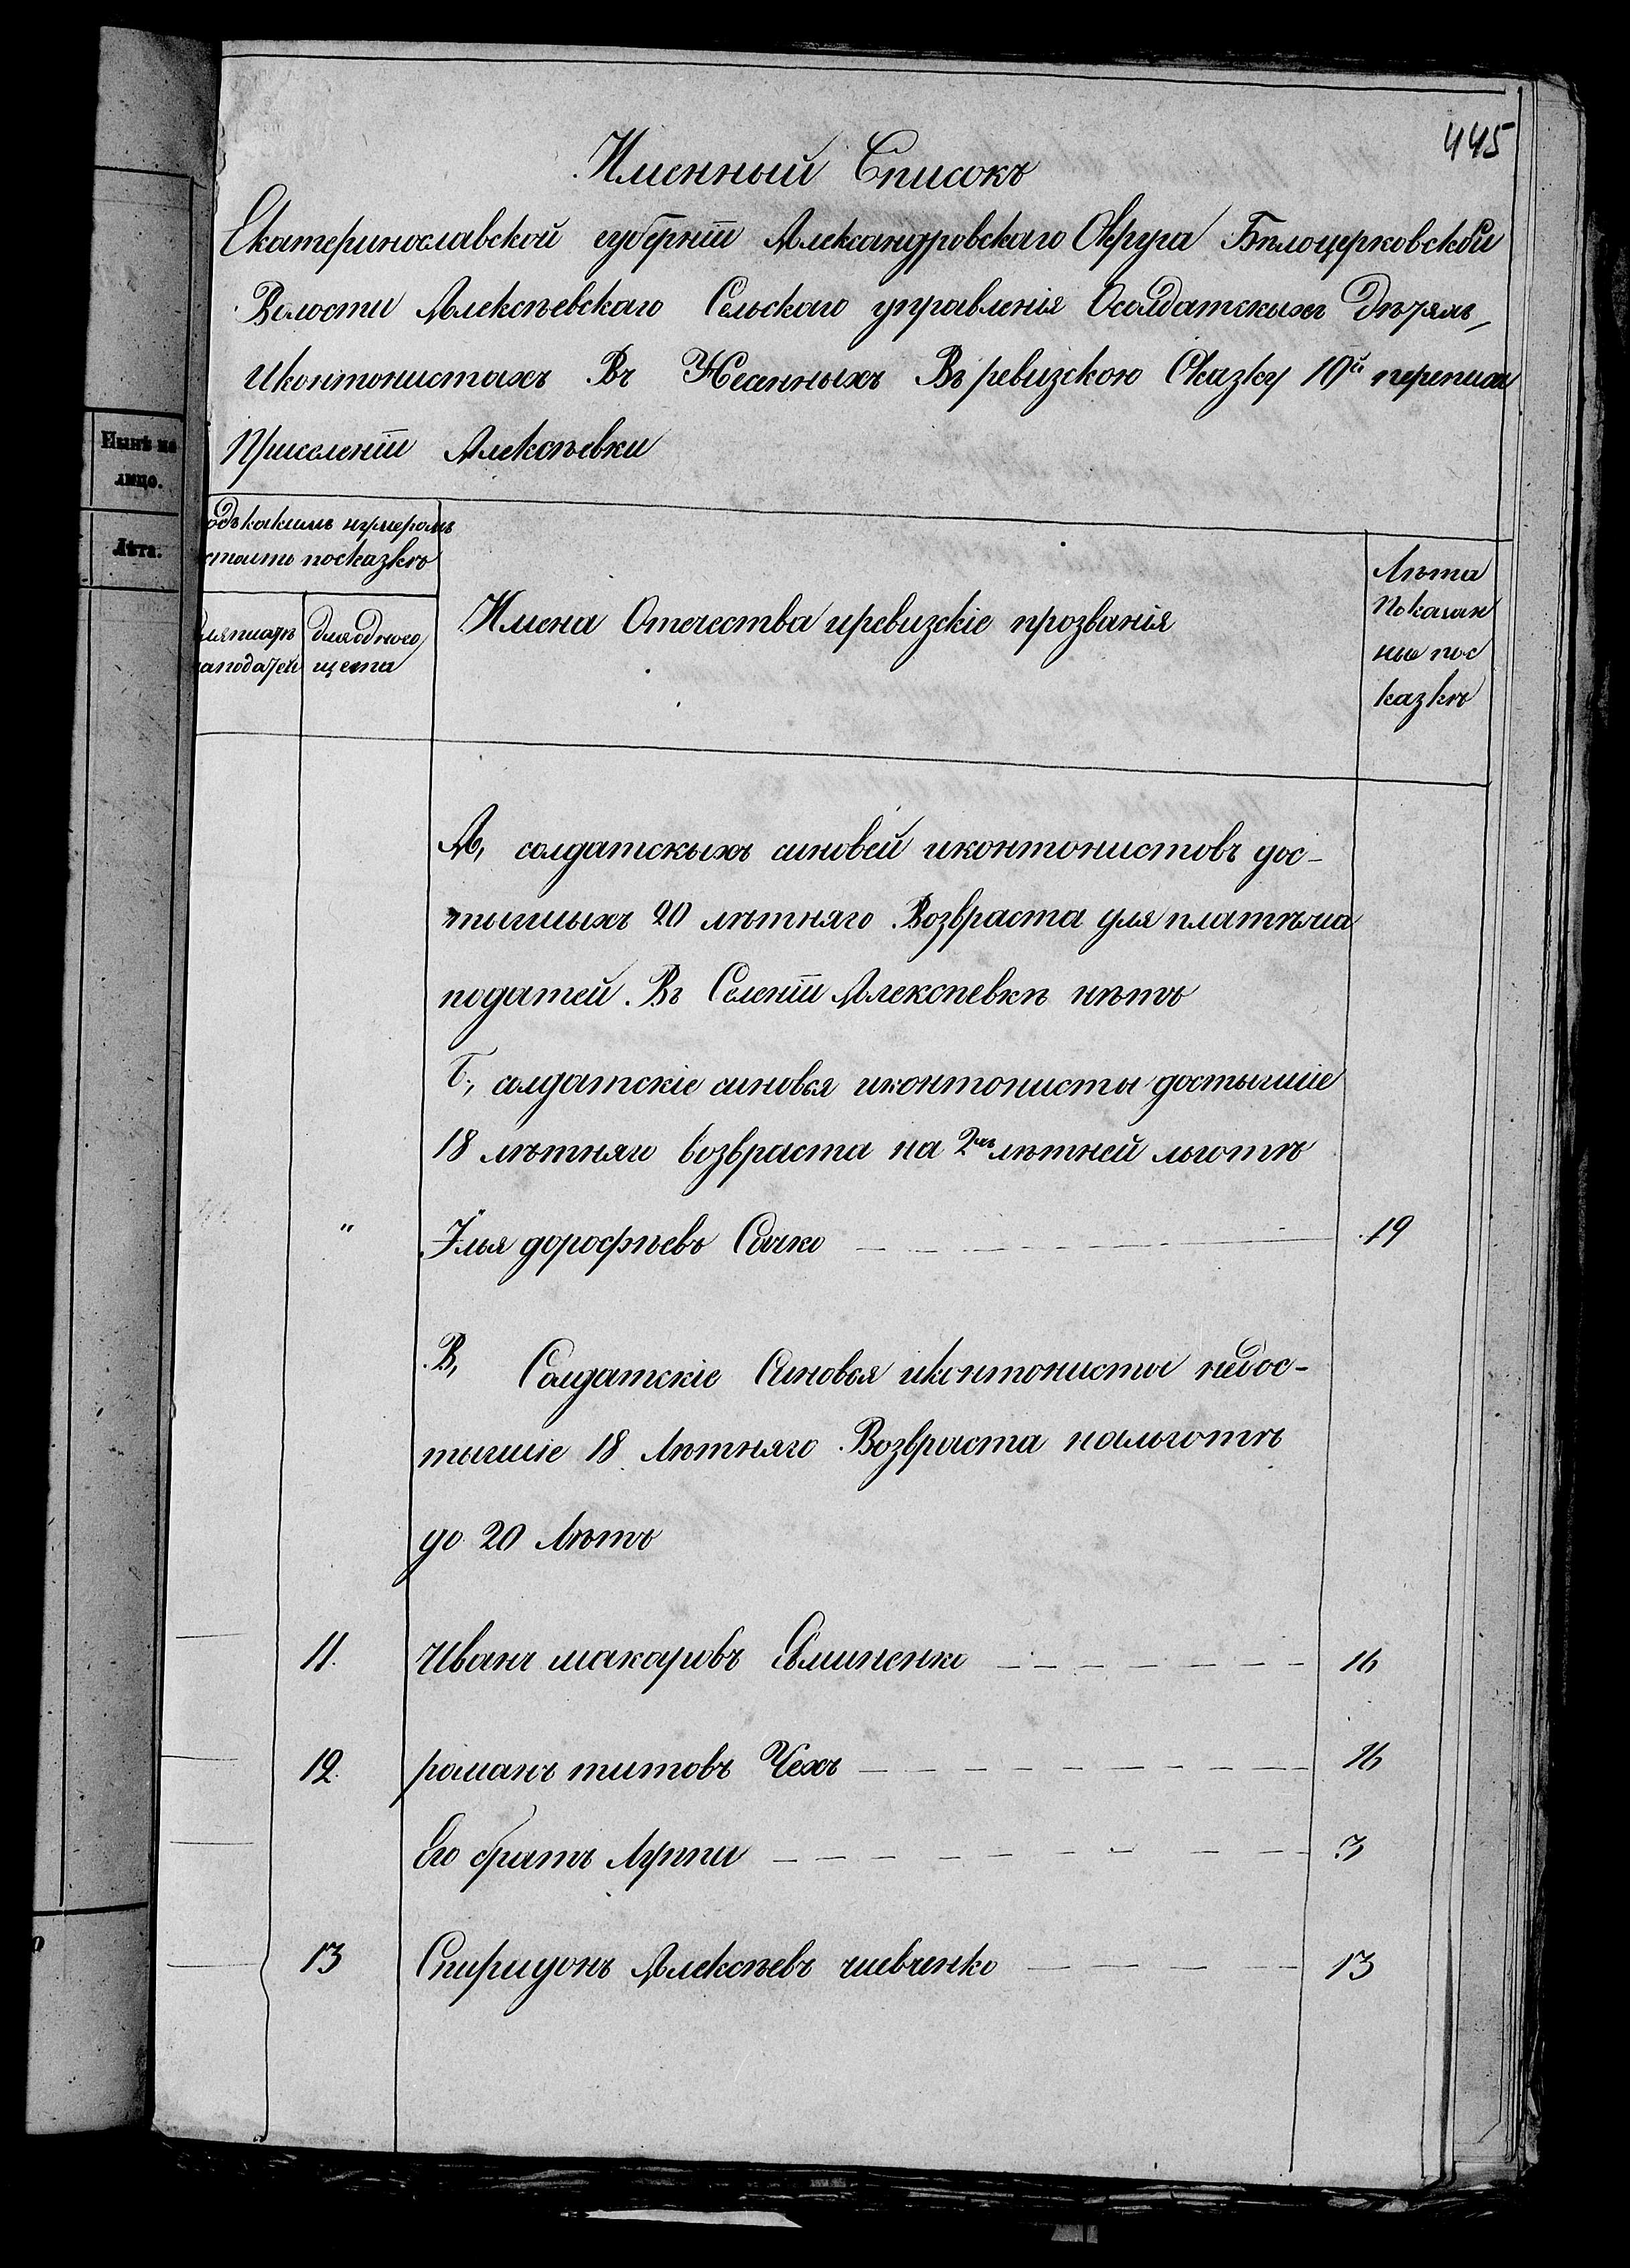 445
Именный Списокъ
Екатеринославской губернїи Александровскаго Округа Бѣлоцерковской
Волости Алексѣевскаго Сельскаго управленія Осолдатскыхъ дѣтяхъ,
иконтонистахъ Въ Несенныхъ Въ ревизскою Сказку 10й переписи
Приселенїи Алексѣевки
Нынѣ на
лицо.
Лѣта.
одъ какимъ нумеромъ
стоитъ посказкѣ
для одного
щета
Имена Отечества иревизскіе прозванія
Лѣта
Показан
ные пос
казкѣ
А, солдатскыхъ синовей иконтонистовъ дос-
тыгшыхъ 20 лѣтняго Возвраста для платѣжа
податей. Въ Селенїи Алексѣевкѣ нѣтъ
Б, салдатскіе синовья иконтонисты достыгшіе
18 лѣтняго возвраста на 2хъ лѣтней льготѣ
" Їлья дорофѣевъ Сочко 19
В, Солдатскіе Синовья иконтонисты недос-
тыгшіе 18 Лѣтняго Возвраста нальготѣ
до 20 Лѣтъ
11. Иванъ макаровъ 16
12. романъ титовъ Чехъ 16
Его братъ Луппа 3
13 Спиридонъ Алексѣевъ шевченко 13